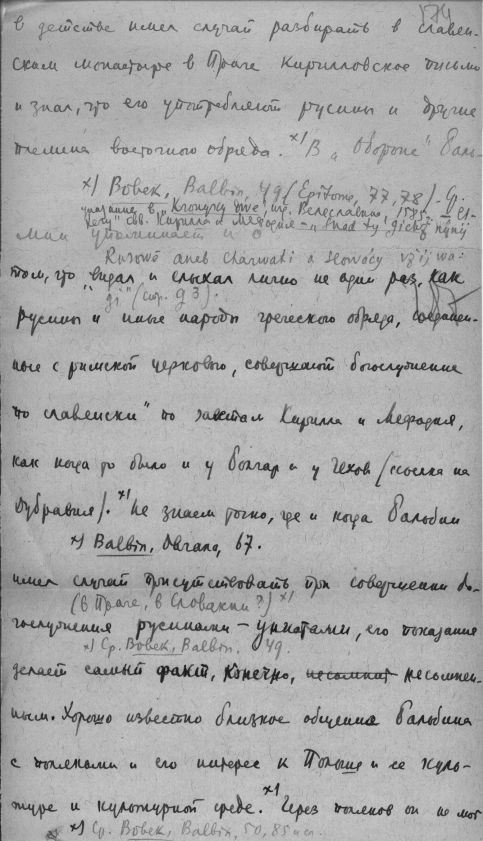 174
в детстве имел случай разбирать в славен-
ском монастыре в Праге Кирилловское письмо
и знал, что его употребляют русины и другие
племена восточного обряда. х) В „Обороне" Баль-
х) Bobek, Balbín, 49 (Epitome, 77, 78). Ср.
указание в „Kronycy dwě", изд. Велеславина, 1585:
св. Кирилла и Мефодия – „snad ty gichž nynj
мин упоминает и о
Rusowé aneb Charwati a Slowácy vžjwa-
том, что „видал и слыхал лично не один раз, как
gj" (стр. 93).
русины и иные народы греческого обряда, соединен-
ные с римской церковью, совершают богослужение
по славенски" по заветам Кирилла и Мефодия,
как когда то было и у болгар и у Чехов (ссылка на
Дубравия). х) Не знаем точно, где и когда Бальбин
х) Balbín, Obrana, 67.
имел случай присутствовать при совершении бо-
(в Праге, в Словакии?) х)
гослужения русинами – униатами, его показания
х) Ср. Bobek, Balbín, 49.
делает самый факт, конечно, несомнен-
ным. Хорошо известно близкое общение Бальбина
с поляками и его интерес к Польше и ее куль-
туре и культурной среде. х) Через поляков он не мог
х) Ср. Bobek, Balbín, 50, 85